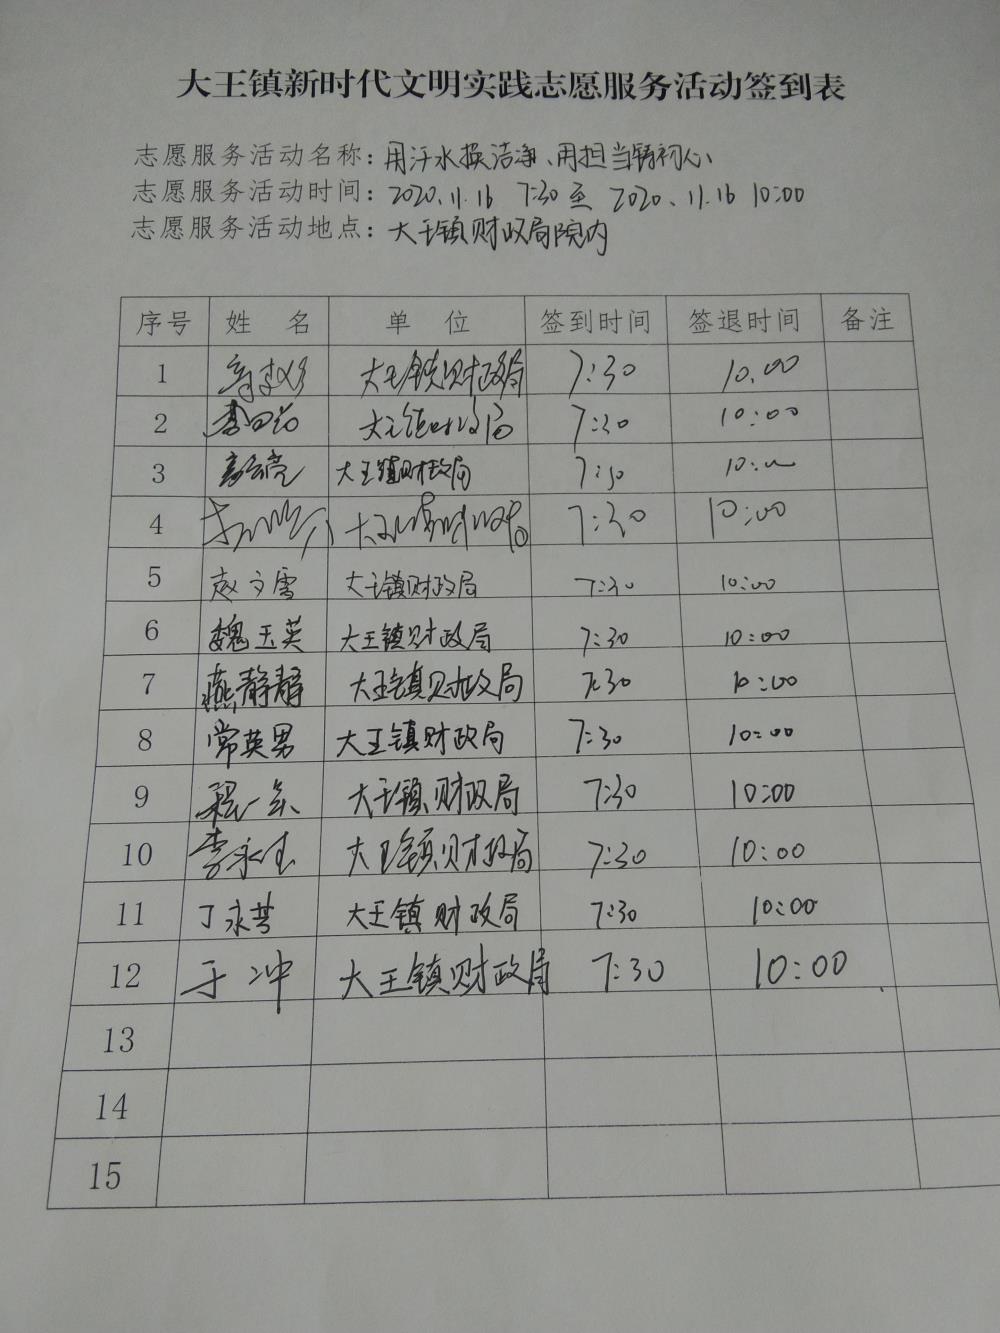 大王镇新时代文明实践志愿服务活动签到表
志愿服务活动名称：用汗水换洁净、用担当铸初心
志愿服务活动时间：2020.11.16 7:30至 2020.11.16 10:00
志愿服务活动地点：大王镇财政局院内
序号 姓 名 单 位 签到时间 签退时间 备注
1 大王镇财政局 7:30 10.00
2 大王镇财政局 7:30 10:00
3 大王镇财政局 7:30 10:00
4 大王镇财政局 7:30 10:00
5 赵文雪 大王镇财政局 7:30 10:00
6 魏玉英 大王镇财政局 7:30 10:00
7 燕静静 大王镇财政局 7:30 10:00
8 常英男 大王镇财政局 7:30 10:00
9 大王镇财政局 7:30 10:00
10 李永生 大王镇财政局 7:30 10:00
11 丁永芳 大王镇财政局 7:30 10:00
12 于冲 大王镇财政局 7:30 10:00
13
14
15